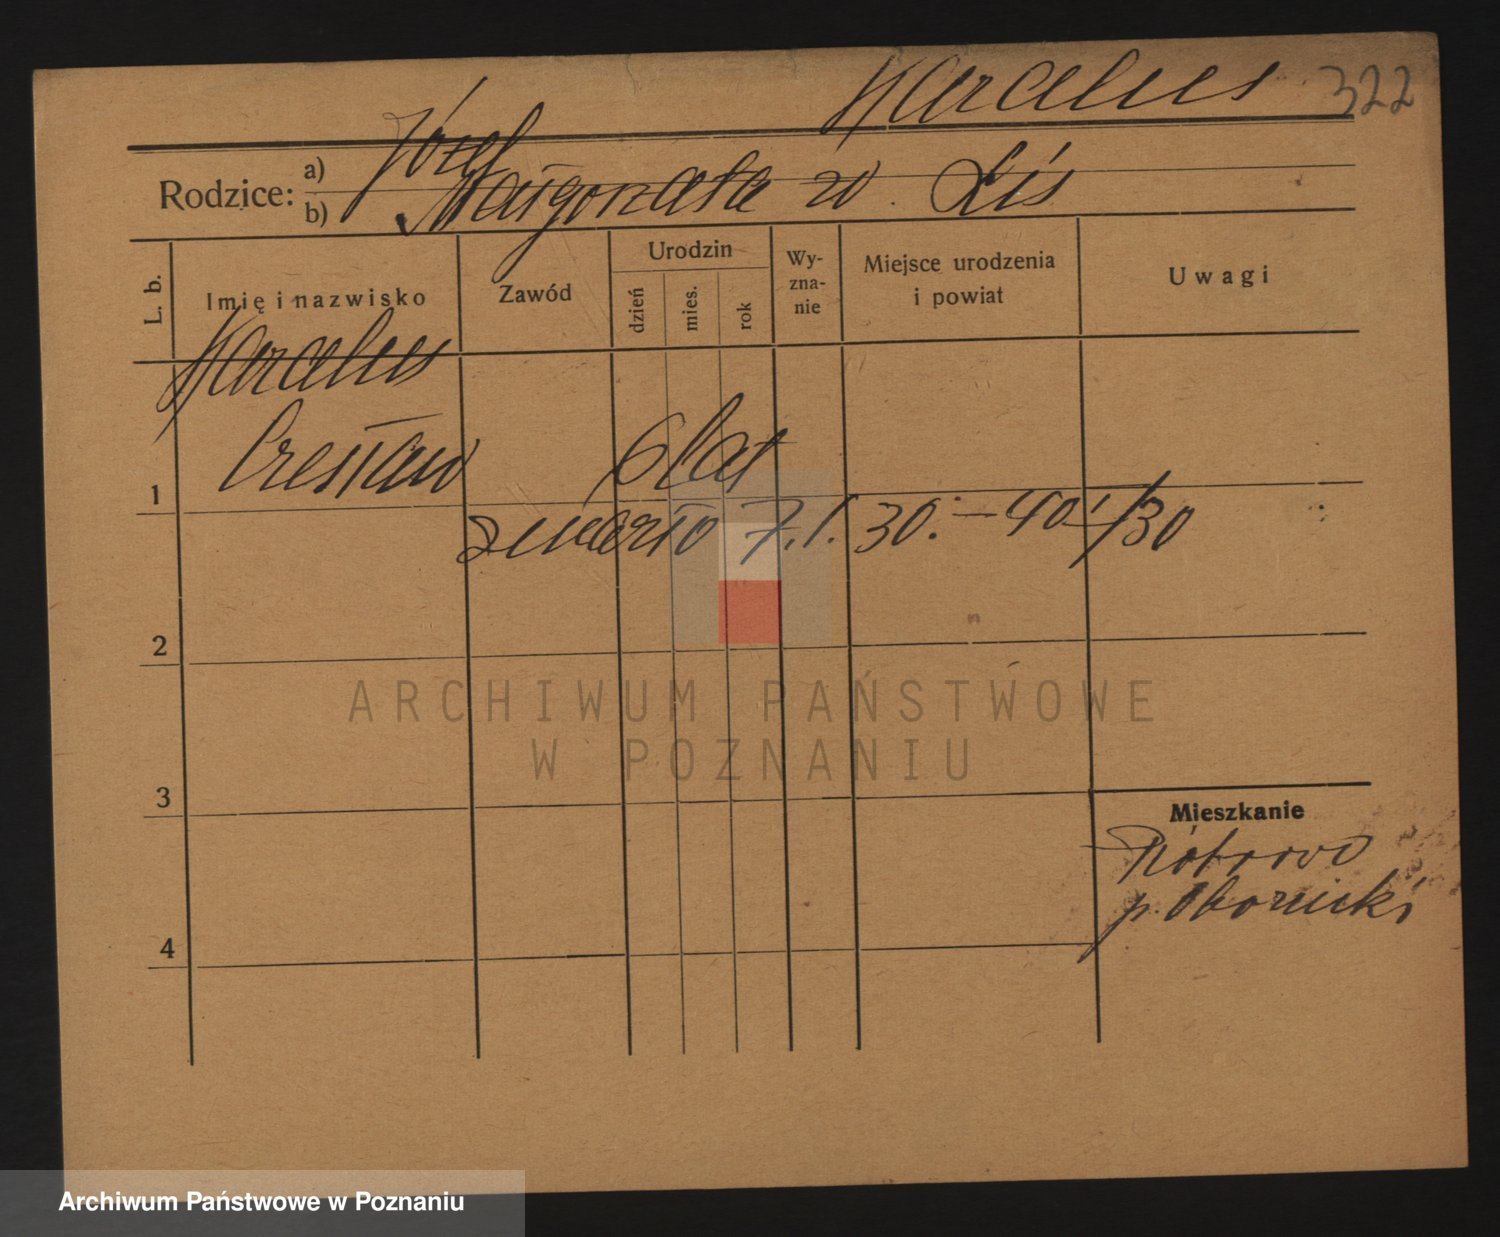 Marcelus 322
Rodzice: a) Józef
b) Małgorzata z Lis
L. b.
Imię i nazwisko
Zawód
Urodzin
dzień
mies.
rok
Wy-
zna-
nie
Miejsce urodzenia
i powiat
Uwagi
Marcelus
1 Czesław 6 lat
zmarło 7.1.30. – 40/30
2
3
4
Mieszkanie
p. Obornicki
ARCHIWUM PAŃSTWOWE
W POZNANIU
Archiwum Państwowe w Poznaniu